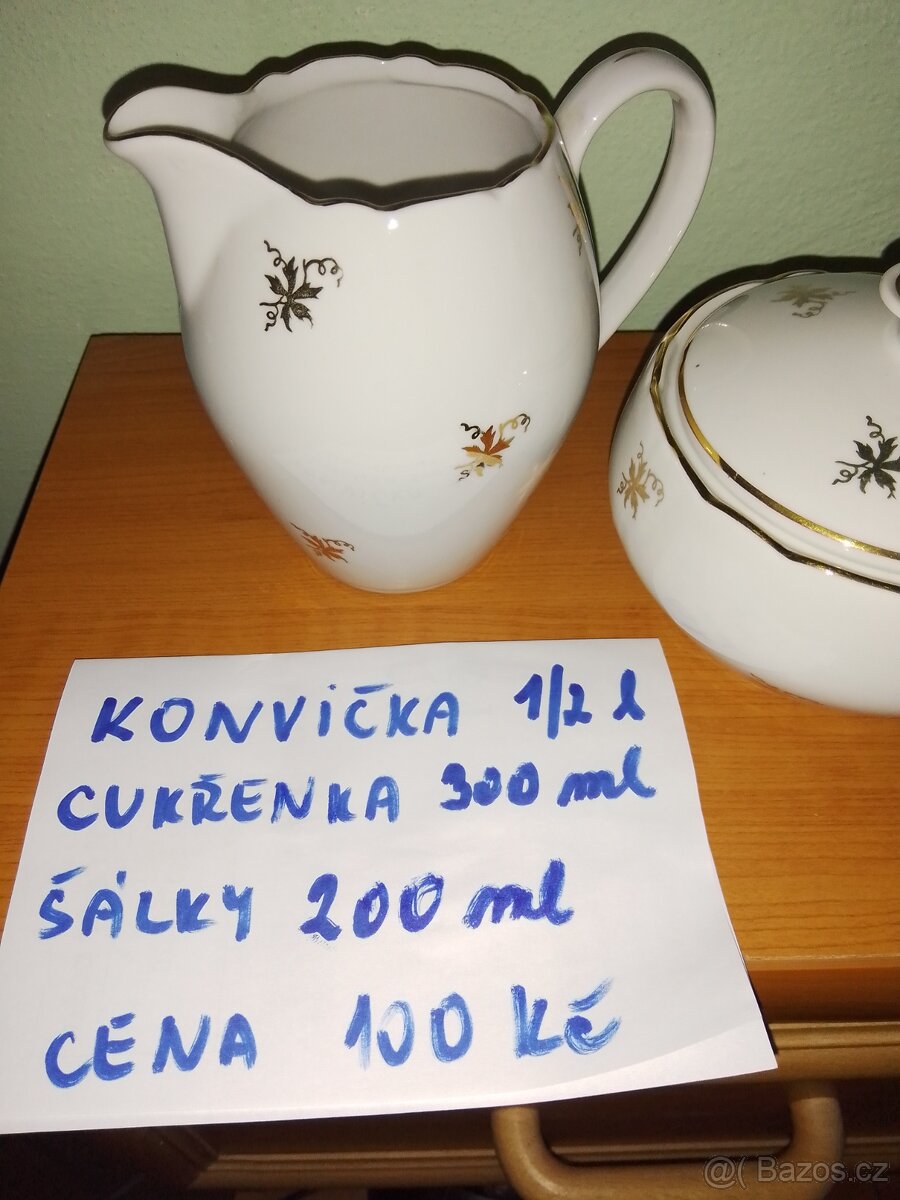 KONVIČKA 1/2 l
CUKŘENKA 300 ml
ŠÁLKY 200 ml
CENA 100 Kč
@( Bazos.cz